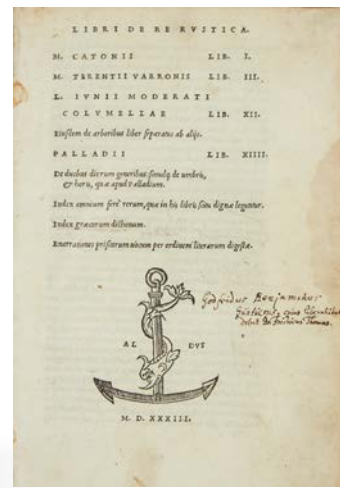 LIBRI DE RE RVSTICA.
M. CATONIS LIB. I.
M. TERENTII VARRONIS LIB. III.
L. IVNII MODERATI
COLVMELLAE LIB. XII.
Eiusdem de arboribus liber separatus ab alijs.
PALLADII LIB. XIIII.
De duobus dierum generibus: simulq; de umbris,
& horis, quæ apud Palladium.
Index omnium ferè rerum, quæ in his libris scitu dignæ leguntur.
Index græcarum dictionum.
Enarrationes priscarum uocum per ordinem literarum digestæ.
Godfridus Benjaminus
AL DVS
M. D. XXXIII.